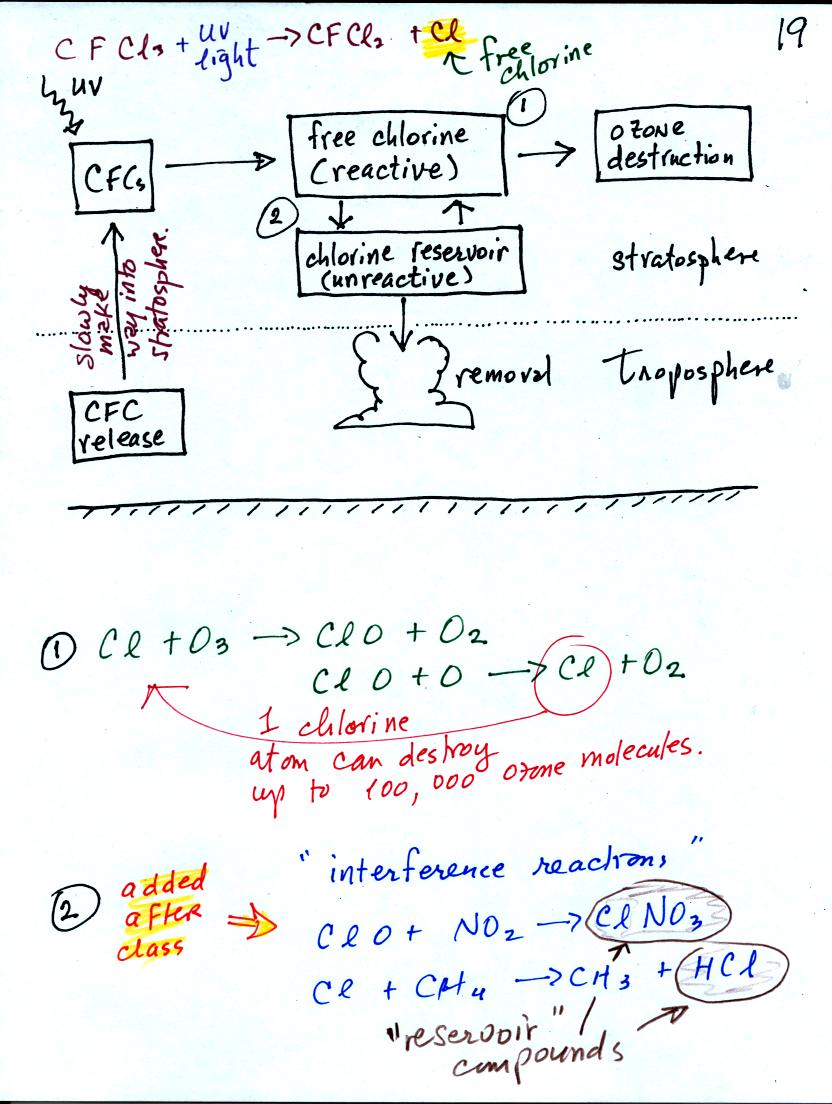 19
CFCl3 + UV light → CFCl2 + Cl
↑ free chlorine
UV
CFCs
free chlorine
(reactive)
1
ozone
destruction
2
chlorine reservoir
(unreactive)
stratosphere
slowly
make
way into
stratosphere.
removal
Troposphere
CFC
release
① Cl + O3 → ClO + O2
ClO + O → Cl + O2
1 chlorine
atom can destroy
up to 100,000 ozone molecules.
② added
after
class
"interference reactions"
ClO + NO2 → ClNO3
Cl + CH4 → CH3 + HCl
"reservoir"
compounds